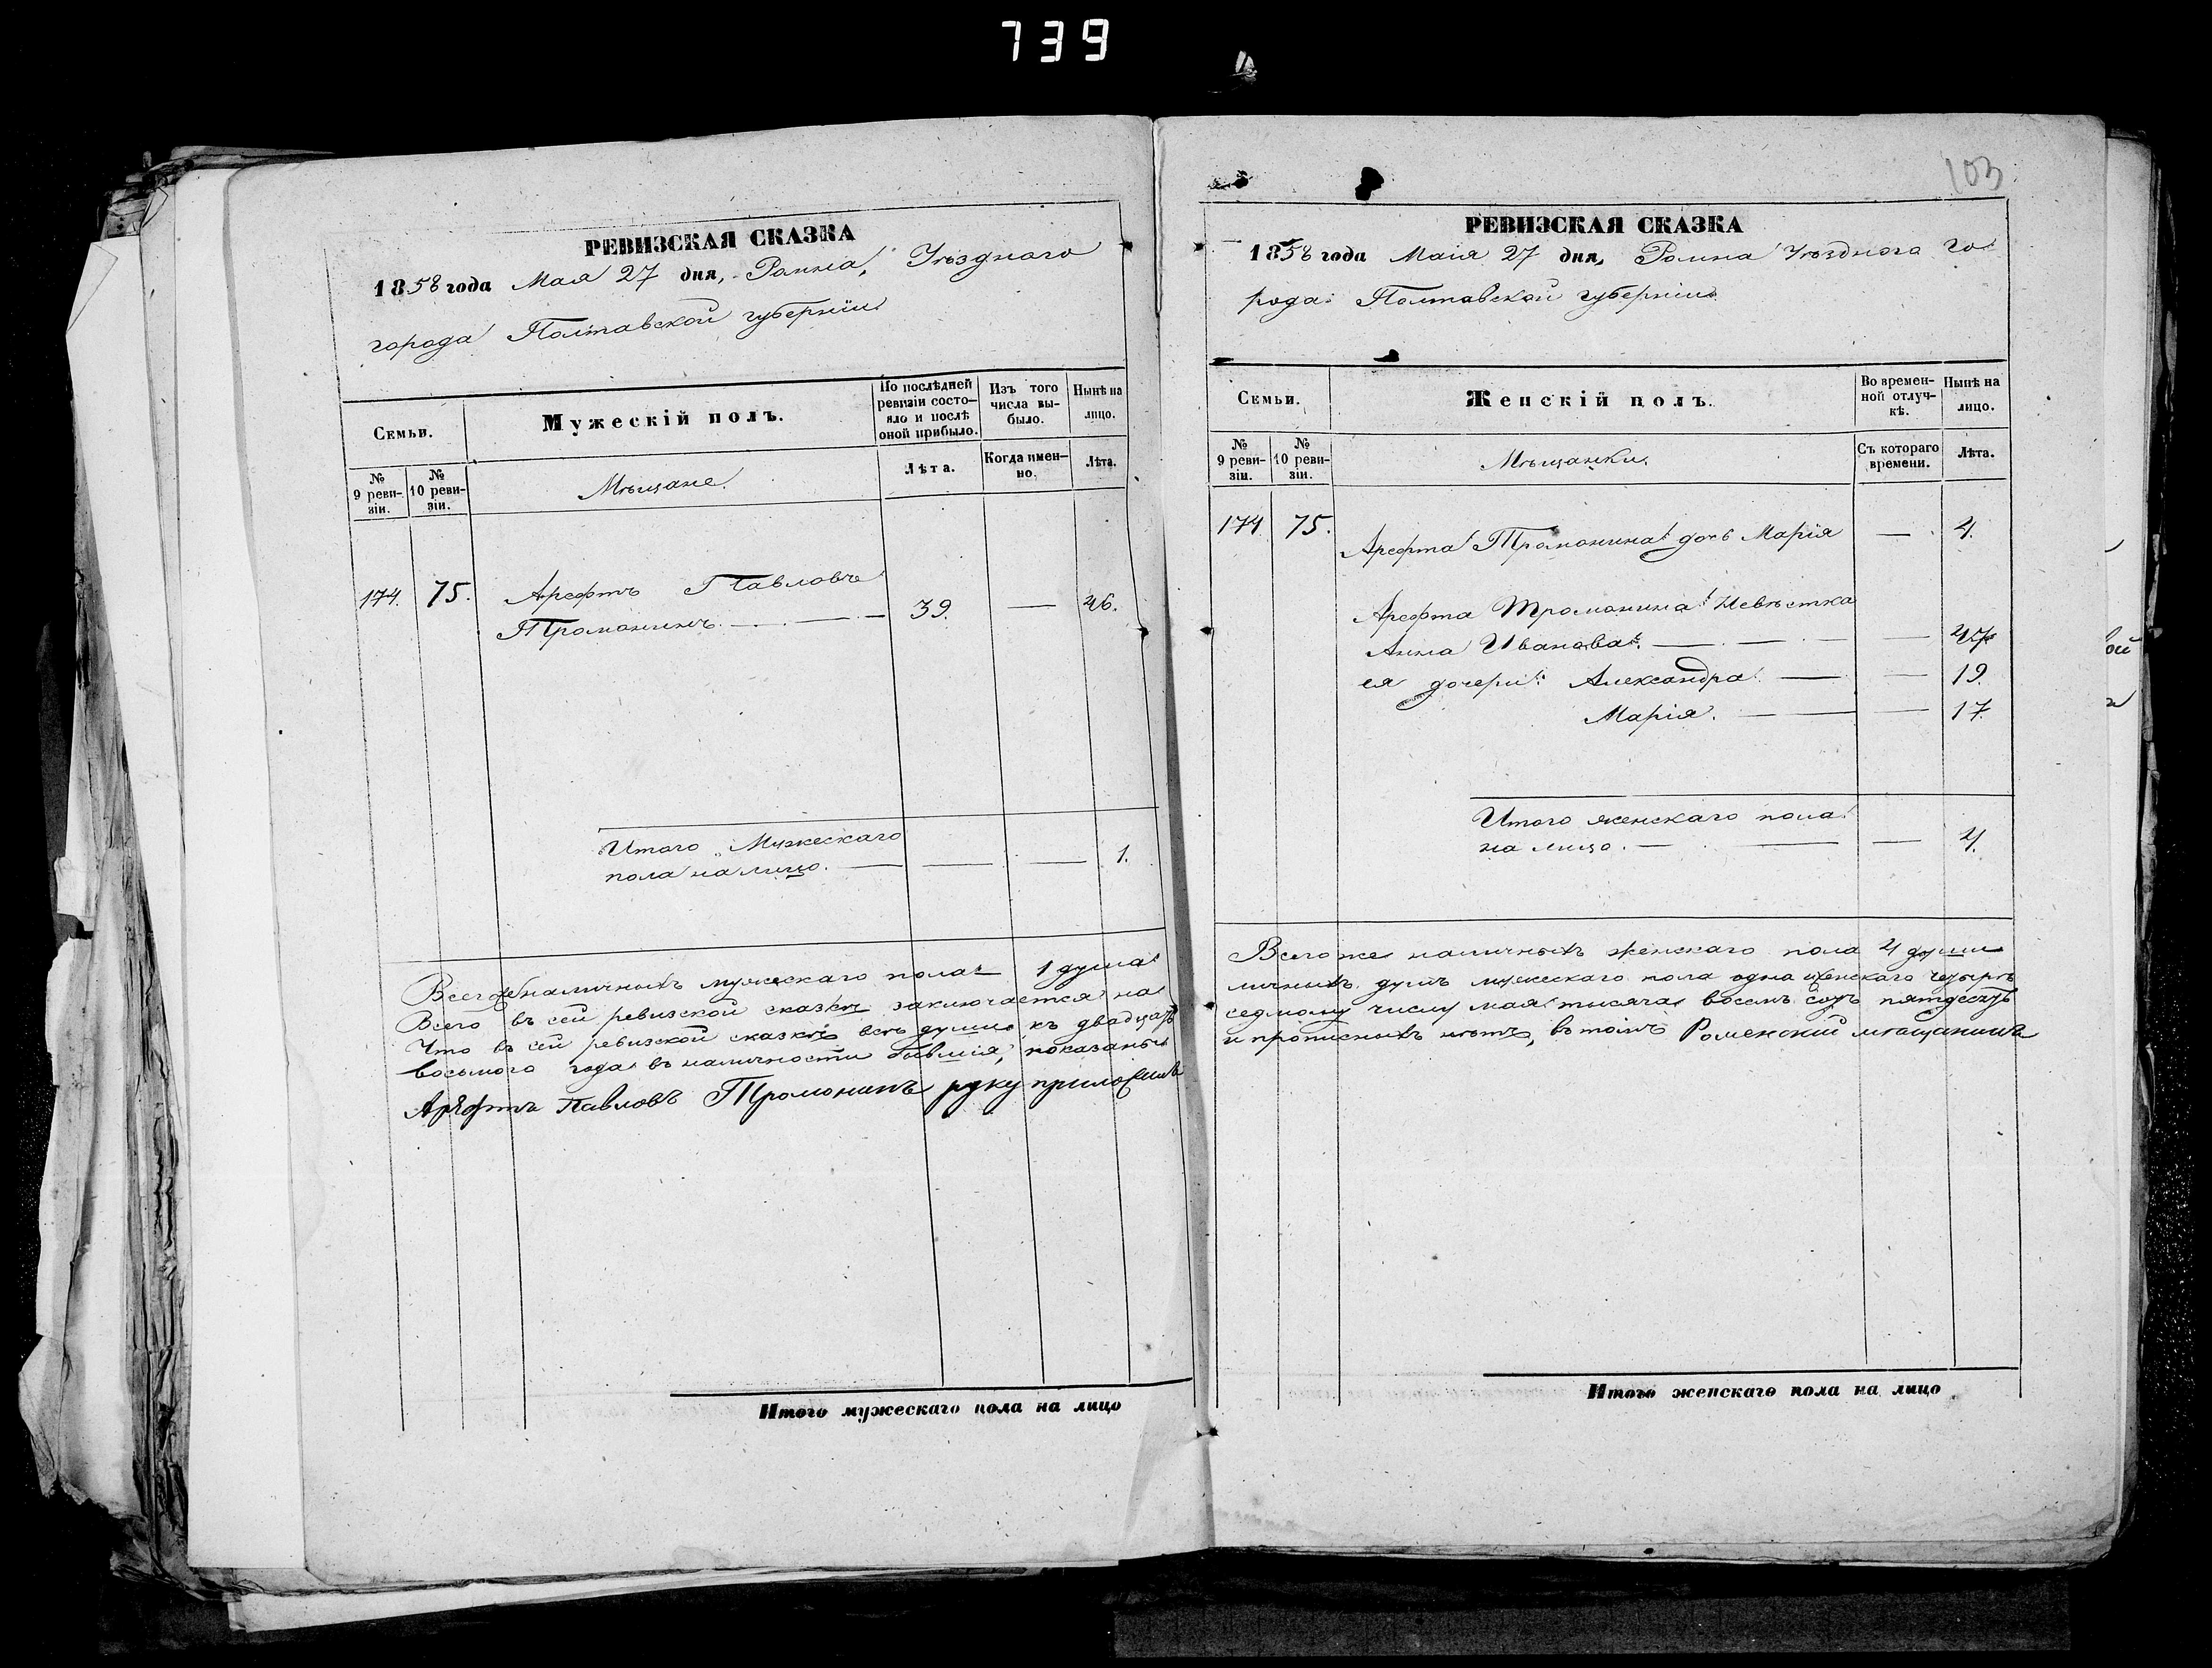 739
РЕВИЗСКАЯ СКАЗКА
1858 года Мая 27 дня, Ромна, Уѣзднаго
города Полтавской губерніи
Семьи.
Мужескій полъ.
По послѣдней ревизіи состояло и послѣ оной прибыло.
Изъ того числа выбыло.
Нынѣ на лицо.
№ 9 ревизіи.
№ 10 ревизіи.
Мѣщане.
Лѣта.
Когда именно.
Лѣта.
174. 75. Арефтъ Павловъ
Тромонинъ. 39. — 46.
Итого Мужескаго
пола на лицо. — — — 1.
Всего наличныхъ мужескаго пола 1 душа
Всего въ сей ревизской сказкѣ заключается на
Что въ сей ревизской сказкѣ всѣ души къ двадцать
восьмого года въ наличности бывшія, показаны
Арефтъ Павловъ Тромонинъ руку приложилъ
Итого мужескаго пола на лицо
103
РЕВИЗСКАЯ СКАЗКА
1858 года Маія 27 дня, Ромна Уѣзднаго го
рода Полтавской губерніи
Семьи.
Женскій полъ.
Во временной отлучкѣ.
Нынѣ на лицо.
№ 9 ревизіи.
№ 10 ревизіи.
Мѣщанки.
Съ котораго времени.
Лѣта.
174 75. Арефта Тромонина дочь Марія — 4.
Арефта Тромонина Невѣстка
Анна Иванова. — — 47
ея дочери: Александра — — 19.
Марія. — — 17.
Итого женскаго пола
на лицо. — — — 4.
Всего же наличныхъ женскаго пола 4 души
личныхъ душъ мужескаго пола одна женскаго четыре
седмому числу мая тысяча восемь сотъ пятдесятъ
и прописныхъ нѣтъ, въ томъ Роменский мѣщанинъ
Итого женскаго пола на лицо